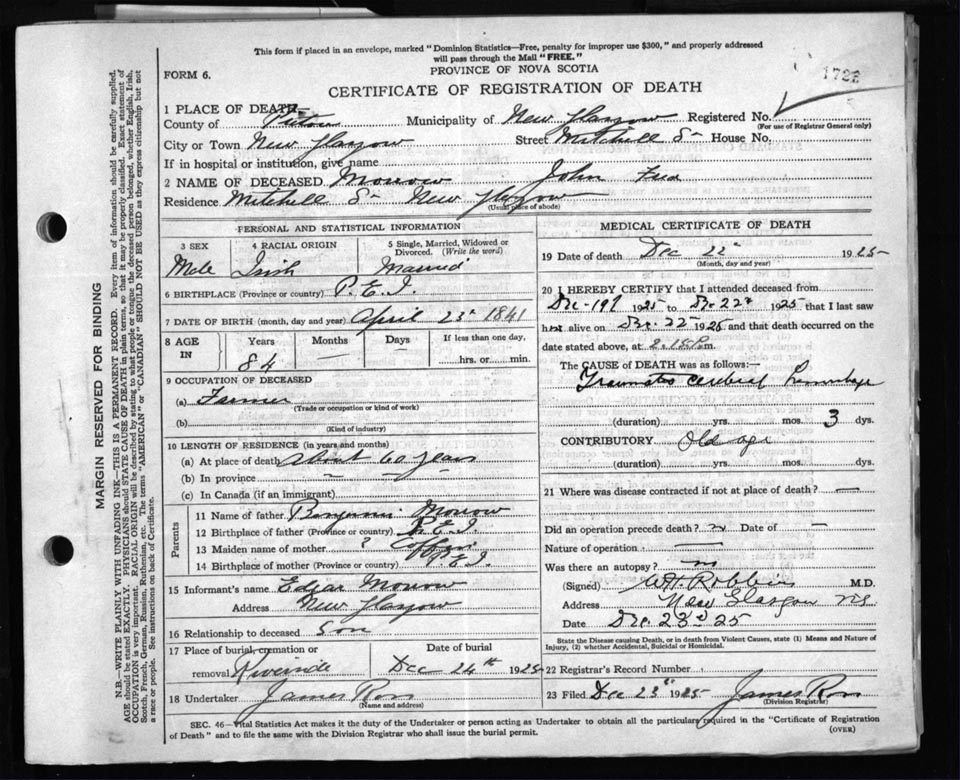 This form if placed in an envelope, marked "Dominion Statistics—Free, penalty for improper use $300," and properly addressed
will pass through the Mail "FREE."
FORM 6.
PROVINCE OF NOVA SCOTIA
172
CERTIFICATE OF REGISTRATION OF DEATH
1 PLACE OF DEATH—
County of Pictou Municipality of New Glasgow Registered No.
(For use of Registrar General only)
City or Town New Glasgow Street Mitchell St House No.
If in hospital or institution, give name
2 NAME OF DECEASED Morrow John Fred
Residence Mitchell St New Glasgow
(Usual place of abode)
PERSONAL AND STATISTICAL INFORMATION
3 SEX 4 RACIAL ORIGIN 5 Single, Married, Widowed or Divorced. (Write the word)
Male Irish Married
6 BIRTHPLACE (Province or country) P.E.I.
7 DATE OF BIRTH (month, day and year) April 23rd 1841
8 AGE IN Years Months Days If less than one day,
84 hrs. or min.
9 OCCUPATION OF DECEASED
(a) Farmer
(Trade or occupation or kind of work)
(b)
(Kind of industry)
10 LENGTH OF RESIDENCE (in years and months)
(a) At place of death About 60 years
(b) In province —
(c) In Canada (if an immigrant)
Parents
11 Name of father Benjamin Morrow
12 Birthplace of father (Province or country) P.E.I.
13 Maiden name of mother ?
14 Birthplace of mother (Province or country) P.E.I.
15 Informant's name Edgar Morrow
Address New Glasgow
16 Relationship to deceased Son
17 Place of burial, cremation or removal Riverside Date of burial Dec 24th 1925
18 Undertaker James Ross
(Name and address)
MEDICAL CERTIFICATE OF DEATH
19 Date of death Dec 22 1925
(Month, day and year)
20 I HEREBY CERTIFY that I attended deceased from
Dec. 19 1925 to Dec. 22 1925 that I last saw
him alive on Dec. 22 1925 and that death occurred on
date stated above, at 2. P.m.
The CAUSE OF DEATH was as follows:—
Traumatic cerebral hemorrhage
(duration) yrs. mos. 3 dys.
CONTRIBUTORY Old age
(duration) yrs. mos. dys.
21 Where was disease contracted if not at place of death? —
Did an operation precede death? no Date of —
Nature of operation —
Was there an autopsy? no
(Signed) W.H. Robbins M.D.
Address New Glasgow N.S.
Date Dec. 23rd 25
State the Disease causing Death, or in death from Violent Causes, state (1) Means and Nature of
Injury, (2) whether Accidental, Suicidal or Homicidal.
22 Registrar's Record Number
23 Filed Dec 23rd 1925 James Ross
(Division Registrar)
SEC. 46—Vital Statistics Act makes it the duty of the Undertaker or person acting as Undertaker to obtain all the particulars required in the "Certificate of Registration
of Death" and to file the same with the Division Registrar who shall issue the burial permit. (OVER)
MARGIN RESERVED FOR BINDING
N.B.—WRITE PLAINLY, WITH UNFADING INK—THIS IS A PERMANENT RECORD. Every item of information should be carefully supplied.
AGE should be stated EXACTLY. PHYSICIANS should STATE CAUSE OF DEATH in plain terms, so that it may be properly classified. Exact statement of
OCCUPATION is very important. RACIAL ORIGIN will be described by stating to what people or tongue the deceased person belonged, whether English, Irish,
Scotch, French, German, Russian, Ruthenian, etc. The terms "AMERICAN" or "CANADIAN" SHOULD NOT BE USED as they express citizenship but not
a race or people. See instructions on back of Certificate.